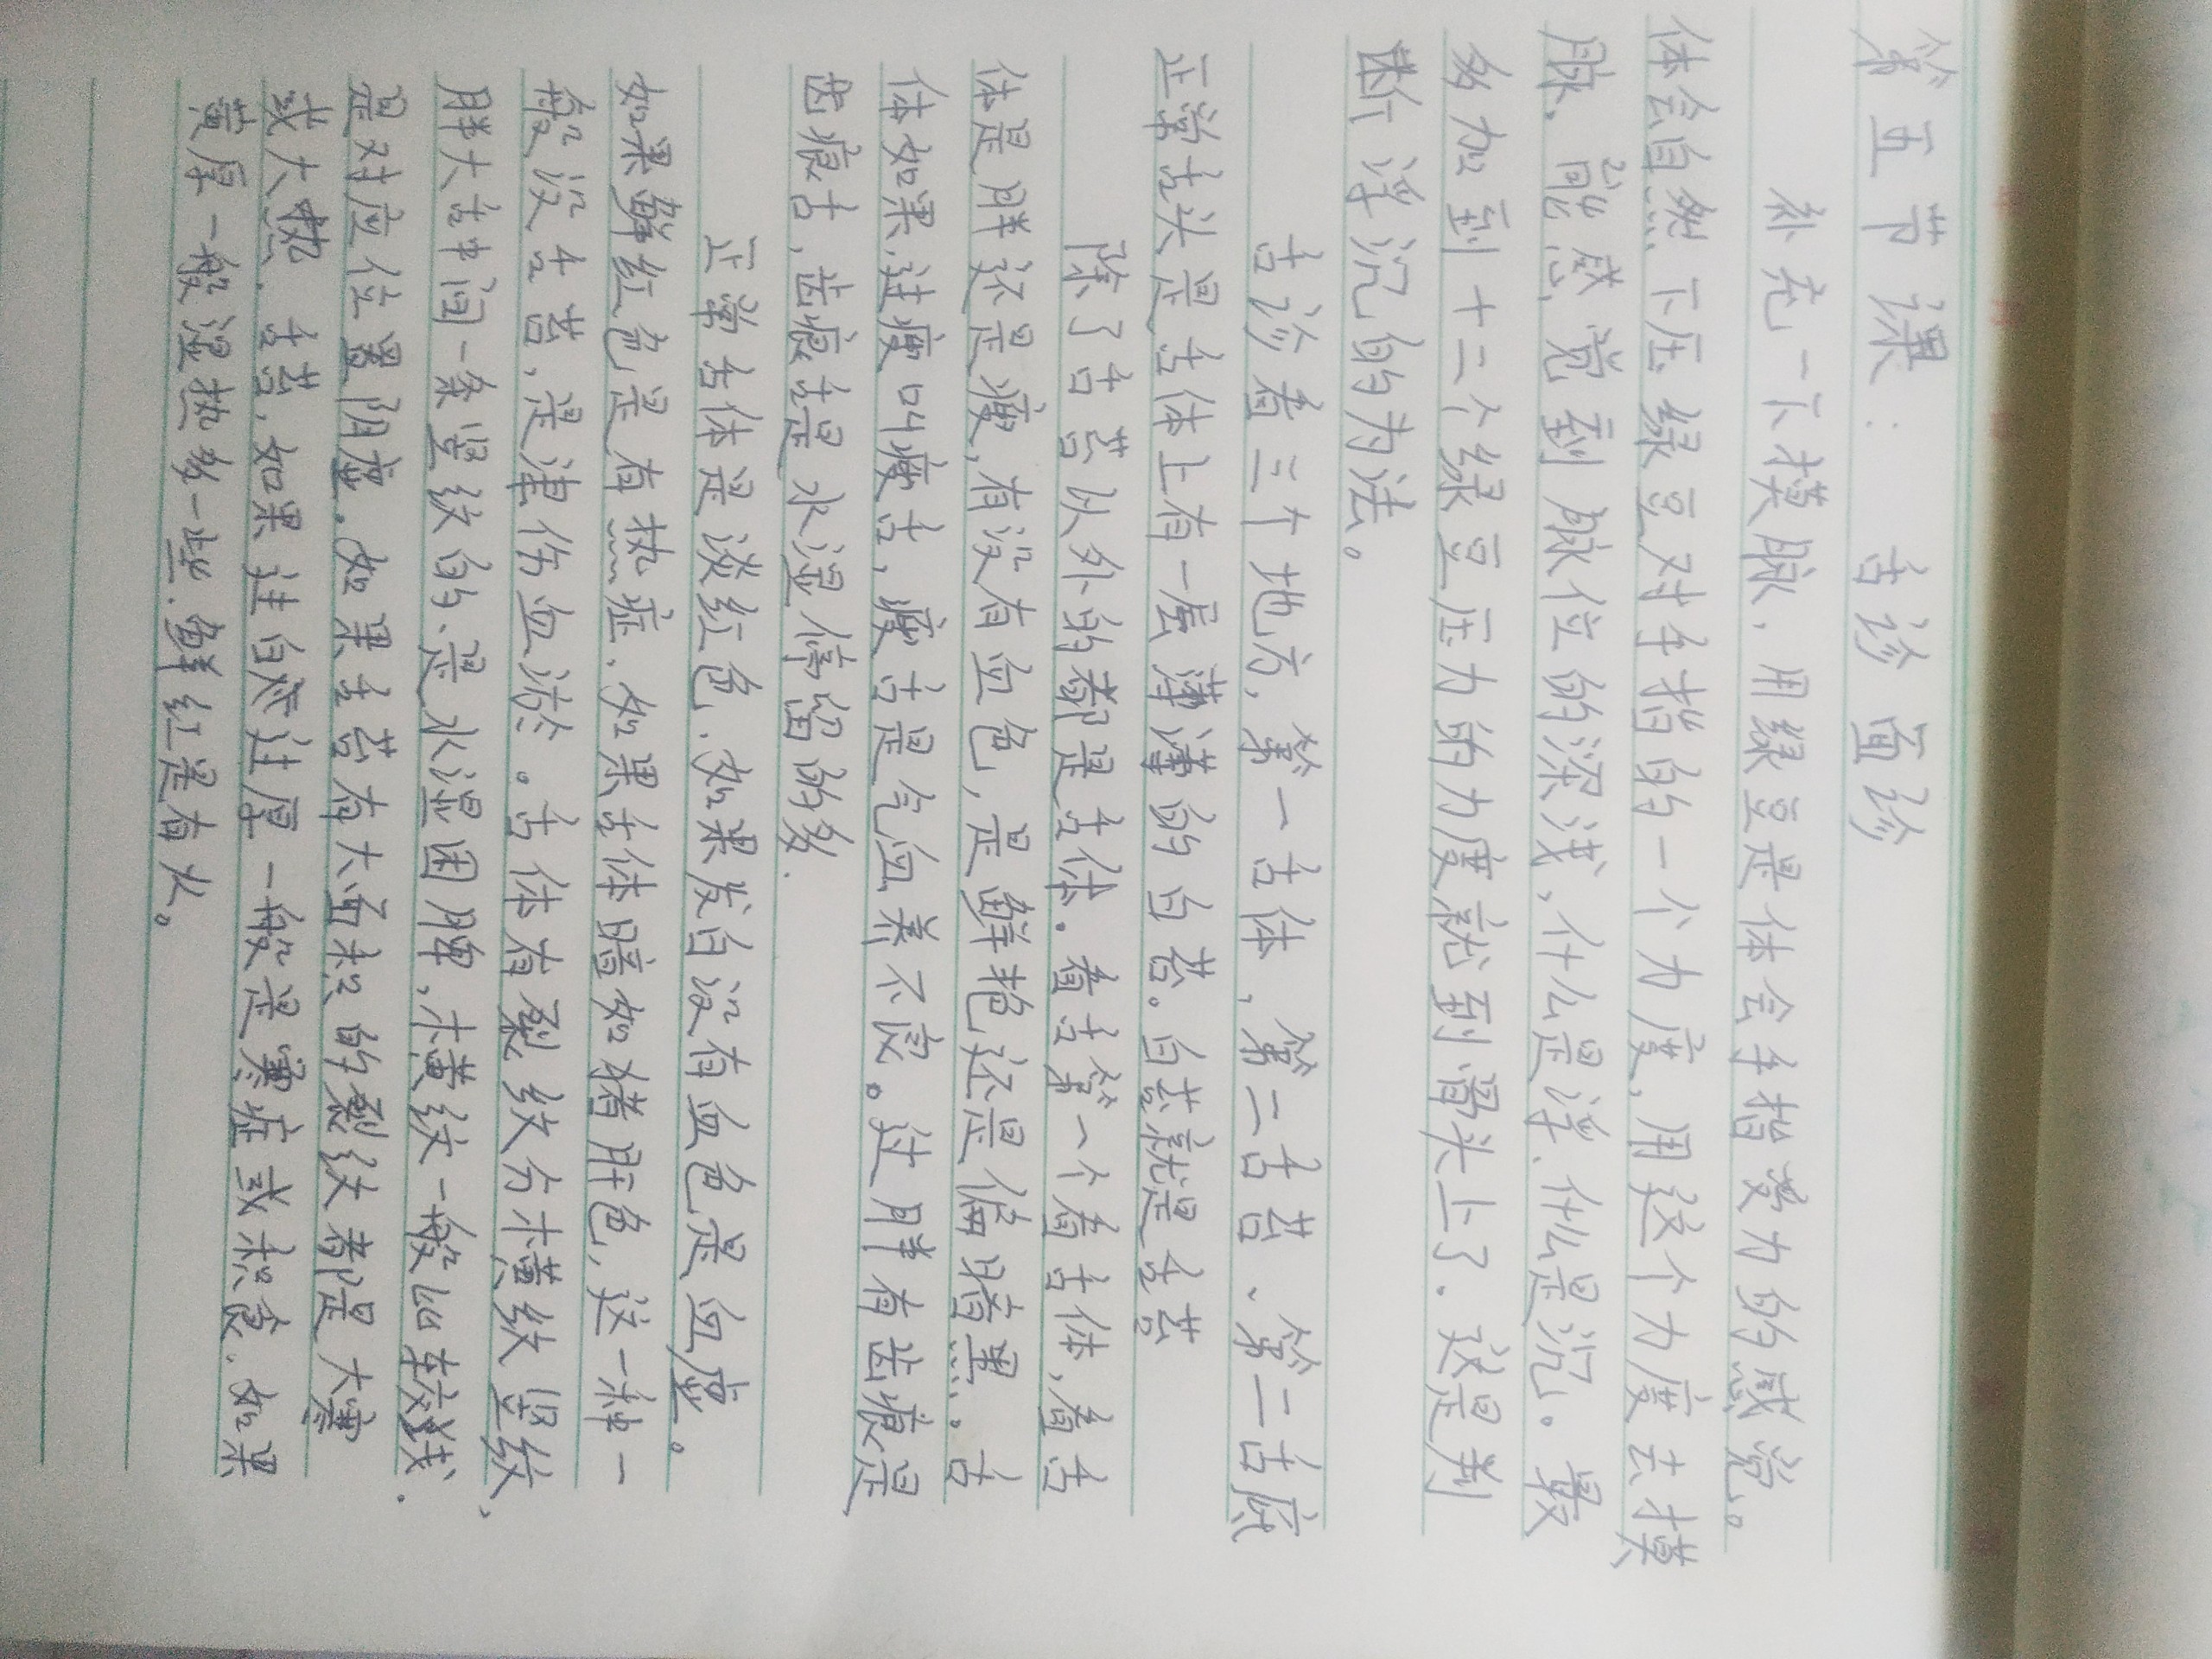 第五节课：舌诊 面诊
补充一下摸脉，用绿豆是体会手指受力的感觉。
体会自然下压绿豆对手指的一个力度，用这个力度去摸
脉，能感觉到脉位的深浅，什么是浮、什么是沉。最
多加到十二个绿豆压力的力度就到骨头上了．这是判
断浮沉的方法。
舌诊看三个地方，第一舌体，第二舌苔、第三舌底
正常舌头是舌体上有一层薄薄的白苔。白苔就是舌苔
除了舌苔以外的都是舌体．看舌第一个看舌体，看舌
体是胖还是瘦，有没有血色，是鲜艳还是偏暗黑。舌
体如果过瘦叫瘦舌，瘦舌是气血养不容。过胖有齿痕是
齿痕舌，齿痕舌是水湿停留的多．
正常舌体是淡红色．如果发白没有血色是血虚。
如果鲜红色是有热症．如果舌体暗如猪肝色，这一种一
般没舌苔，是津伤血淤。舌体有裂纹分木横纹竖纹，
胖大舌中间一条竖纹的、是水湿困脾，木横纹一般比较浅．
是对应位置阴虚．如果舌苔有大面积的裂纹都是大寒
或大热．舌苔，如果过白或过厚一般是寒症或积食．如果
黄厚一般湿热多一些．鲜红是有火。